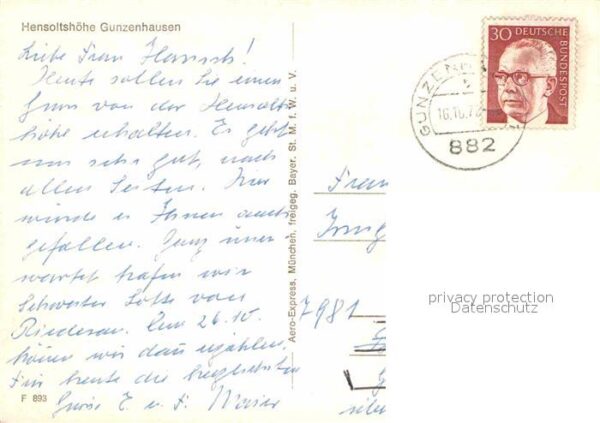 Hensoltshöhe Gunzenhausen
Liebe Frau
Heute sollen Sie einen
Gruss von der Hensolts
höhe erhalten. Es geht
uns sehr gut, nach
allen Seiten. Hier
würde es Ihnen auch
gefallen. Ganz uner
wartet trafen wir
Schwester Lotte von
Riederau. Am 26.10.
können wir dann erzählen.
Für heute die herzlichsten
Grüsse E. u. F.
F 893
Aero-Express, München, freigeg. Bayer. St. M. f. W. u. V.
30 DEUTSCHE BUNDESPOST
GUNZEN
16.10.7
882
Frau
7981
privacy protection
Datenschutz